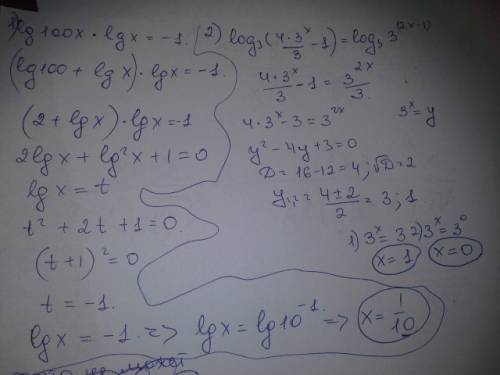 1) lg 100x · lg x = -1.
(lg100 + lg x) · lg x = -1.
(2 + lg x) · lg x = -1
2lg x + lg²x + 1 = 0
lg x = t
t² + 2t + 1 = 0.
(t+1)² = 0
t = -1.
lg x = -1. => lg x = lg 10⁻¹. => x = 1/10
2) log₃(4·3ˣ/3 - 1) = log₃ 3^(2x-1)
4·3ˣ/3 - 1 = 3^2x/3.
4·3ˣ - 3 = 3^2x 3ˣ = y
y² - 4y + 3 = 0
D = 16 - 12 = 4; √D = 2
y₁,₂ = 4±2/2 = 3; 1
1) 3ˣ = 3 2) 3ˣ = 3⁰
x = 1 x = 0